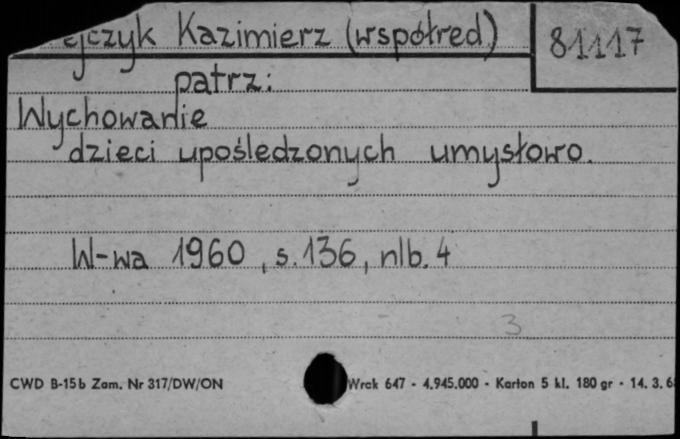 ejczyk Kazimierz (współred.)
81117
patrz:
Wychowanie
dzieci upośledzonych umysłowo.
W-wa 1960, s. 136, nlb. 4
3
CWD B-15b Zam. Nr 317/DW/ON Wrck 647 - 4.945.000 - Karton 5 kl. 180 gr - 14. 3. 6